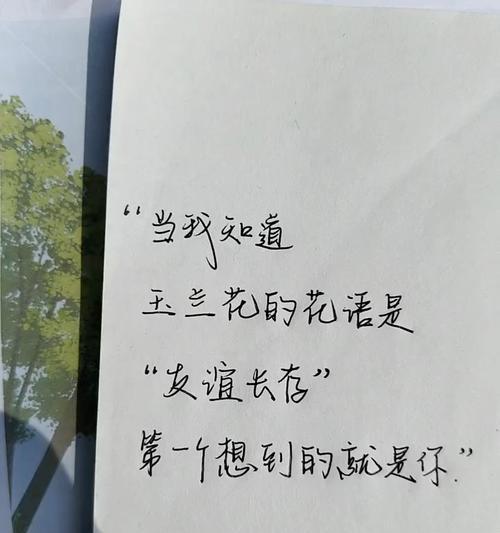 “当我知道
玉兰花的花语是
“友谊长存”
第一个想到的就是你”